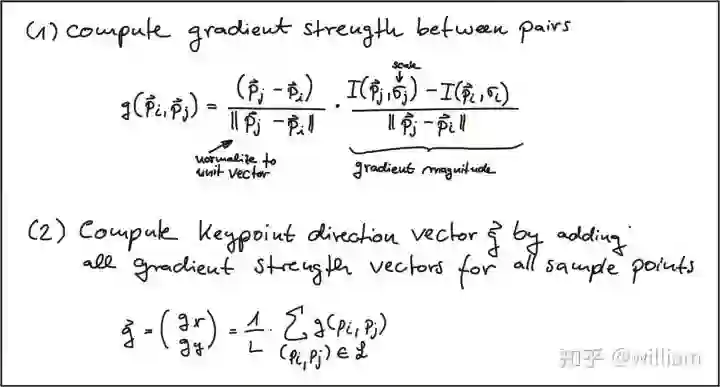 (1) compute gradient strength between pairs
scale
g(p⃗i, p⃗j) = (p⃗j - p⃗i) / ‖p⃗j - p⃗i‖ · I(p⃗j, σj) - I(p⃗i, σi) / ‖p⃗j - p⃗i‖
normalize to
unit vector
gradient magnitude
(2) Compute keypoint direction vector g⃗ by adding
all gradient strength vectors for all sample points
g⃗ = (gx gy) = 1/L · Σ g(pi, pj)
(pi, pj) ∈ ℒ
知乎 @william